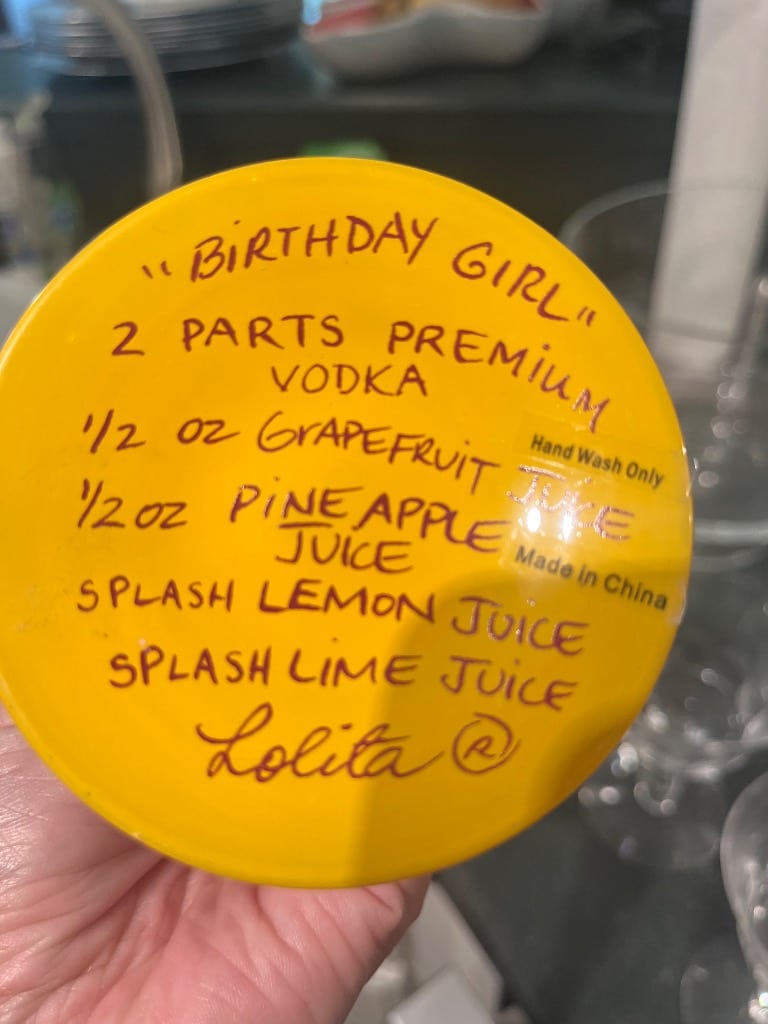 "BIRTHDAY GIRL"
2 PARTS PREMIUM
VODKA
1/2 oz GRAPEFRUIT JUICE
1/2 oz PINEAPPLE
JUICE
SPLASH LEMON JUICE
SPLASH LIME JUICE
Lolita ®
Hand Wash Only
Made in China